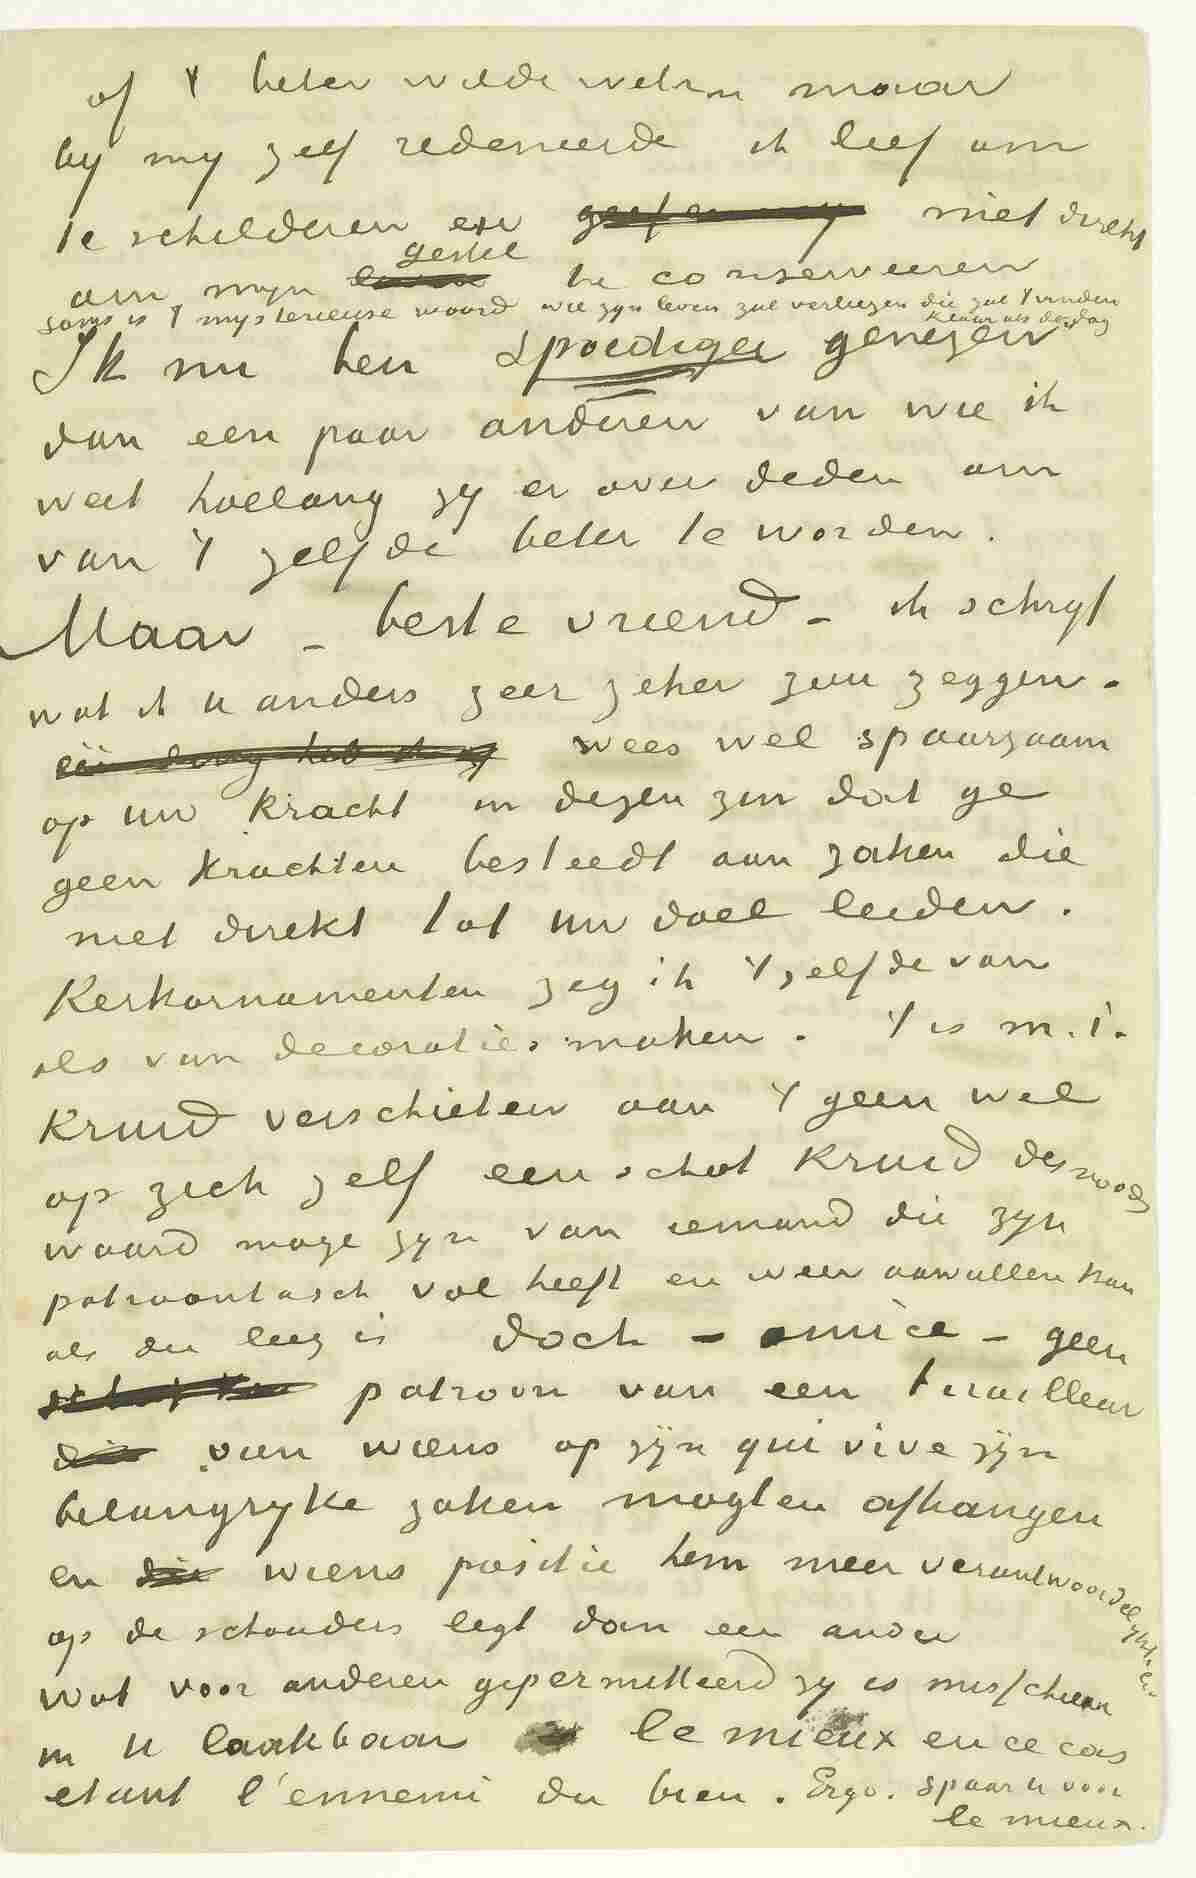 of 't beter wilde weten maar
by my zelf redeneerde ik leef om
te schilderen en geef er my niet direkt
gestel
om myn leven te conserveeren
soms is 't mysterieuse woord wie zyn leven zal verliezen die zal 't vinden
klaar als de dag
Ik nu ben spoediger genezen
dan een paar anderen van wie ik
weet hoelang zy er over deden om
van 't zelfde beter te worden.
Maar – beste vriend – ik schryf
wat ik u anders zeer zeker zou zeggen –
één ding heb ik wees wel spaarzaam
op uw kracht in dezen zin dat ge
geen krachten besteedt aan zaken die
niet direkt tot uw doel leiden.
Kerkornamenten zeg ik 't zelfde van
als van decoraties maken. 't is m.i.
Kruid verschieten aan 't geen wel
op zich zelf een schot Kruid desnoods
waard moge zyn van iemand die zyn
patroontasch vol heeft en weer aanvullen kan
als die leeg is doch – amice – geen
patroon van een tirailleur
die van wiens op zijn qui vive zijn
belangryke zaken mogten afhangen
en die wiens positie hem meer verantwoordelykheid
op de schouders legt dan een ander
Wat voor anderen gepermitteerd zy is misschien
in U laakbaar le mieux en ce cas
etant l'ennemi du bien. Ergo. spaar u voor
le mieux.